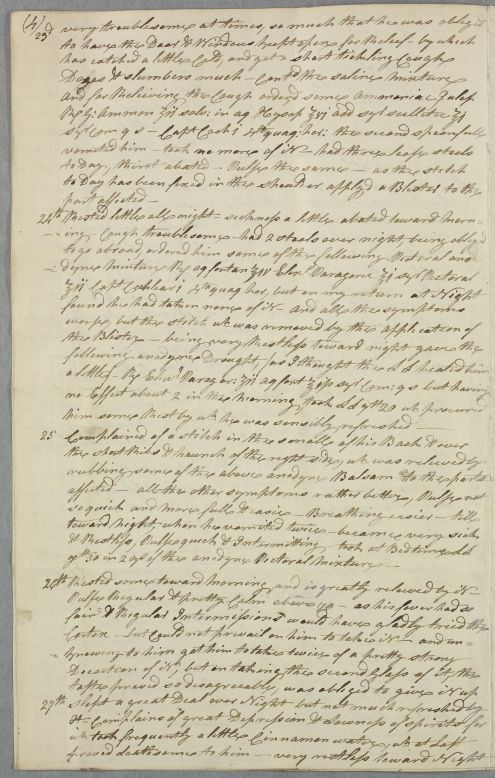 (4)
23d very troublesome at times, so much that he was obliged
to have the Door & Windows kept open for Relief - by which
has catched a little Cold, and got a short tickling Cough
Dozes & slumbers much - Contd the saline mixture
and for Relieving the Cough orderd some Ammoniac Julep
Rx G: Ammon ʒij solv: in aq Hysop ℥vj add syl scillit ℥j
syl Com q s - Capt Coch j 4ta quaq hor: the second spoonfull
vomited him - took no more of it - had three loose stools
to Day, thirst abated - Pulse the same - as the stitch
to Day has been fixed in the shoulder applyd a Blister to the
part affected -
24th Rested little all night - sickness a little abated toward Morn-
-ing - Cough troublesome - had 2 stools over night, being obliged
to go abroad ordered him some of the following Pectoral ano-
-dyne mixture Rx aq fontan Elixr Paregoric syl Pectoral
Capt Cochlear j 4ta quaq hor, but on my return at Night
found he had taken none of it and all the symptoms
worse, but the stitch wh was removed by the application of
the Blister - being very Restless toward night gave the
following anodyne Drought (as I thought the Ld heated him
a little - Rx Elixr Paregor: aq font syl Com: q s but having
no Effect about 2 in the Morning, took Ld gtt 20 wh procured
him some Rest by wh he was sensibly refreshed -
25 Complained of a stitch in the smalle of his Back & over
the short Ribs & haunch of the right side, wh was relieved by
rubbing some of the above anodyne Balsam to the parts
affected - all the other symptoms rather better, Pulse not
so quick and more full & easie - Breathing easier - till
toward Night when he vomited twice - became very sick
& Restless, Pulse quick & Intermitting, took at Bedtime Ld
gtt 30 in 2 of the anodyne Pectoral mixture -
26th Rested some toward morning, and is greatly relieved by it
Pulse Regular & pretty Calm above 70 - as his fever had a
fair & Regular Intermission would have gladly tried the
Cortex - but Could not prevail on him to take it - and un-
-knowing to him got him to take twice of a pretty strong
Decoction of it, but on taking the second Glass of it, the
taste proved so disagreeable, was obliged to give it up
27th Slept a great Deal over Night but not much refreshed by
it - Complains of great Depression & lowness of spirits for
wh took frequently a little Cinnamon water, wh at last
proved loathsome to him - very restless toward Night